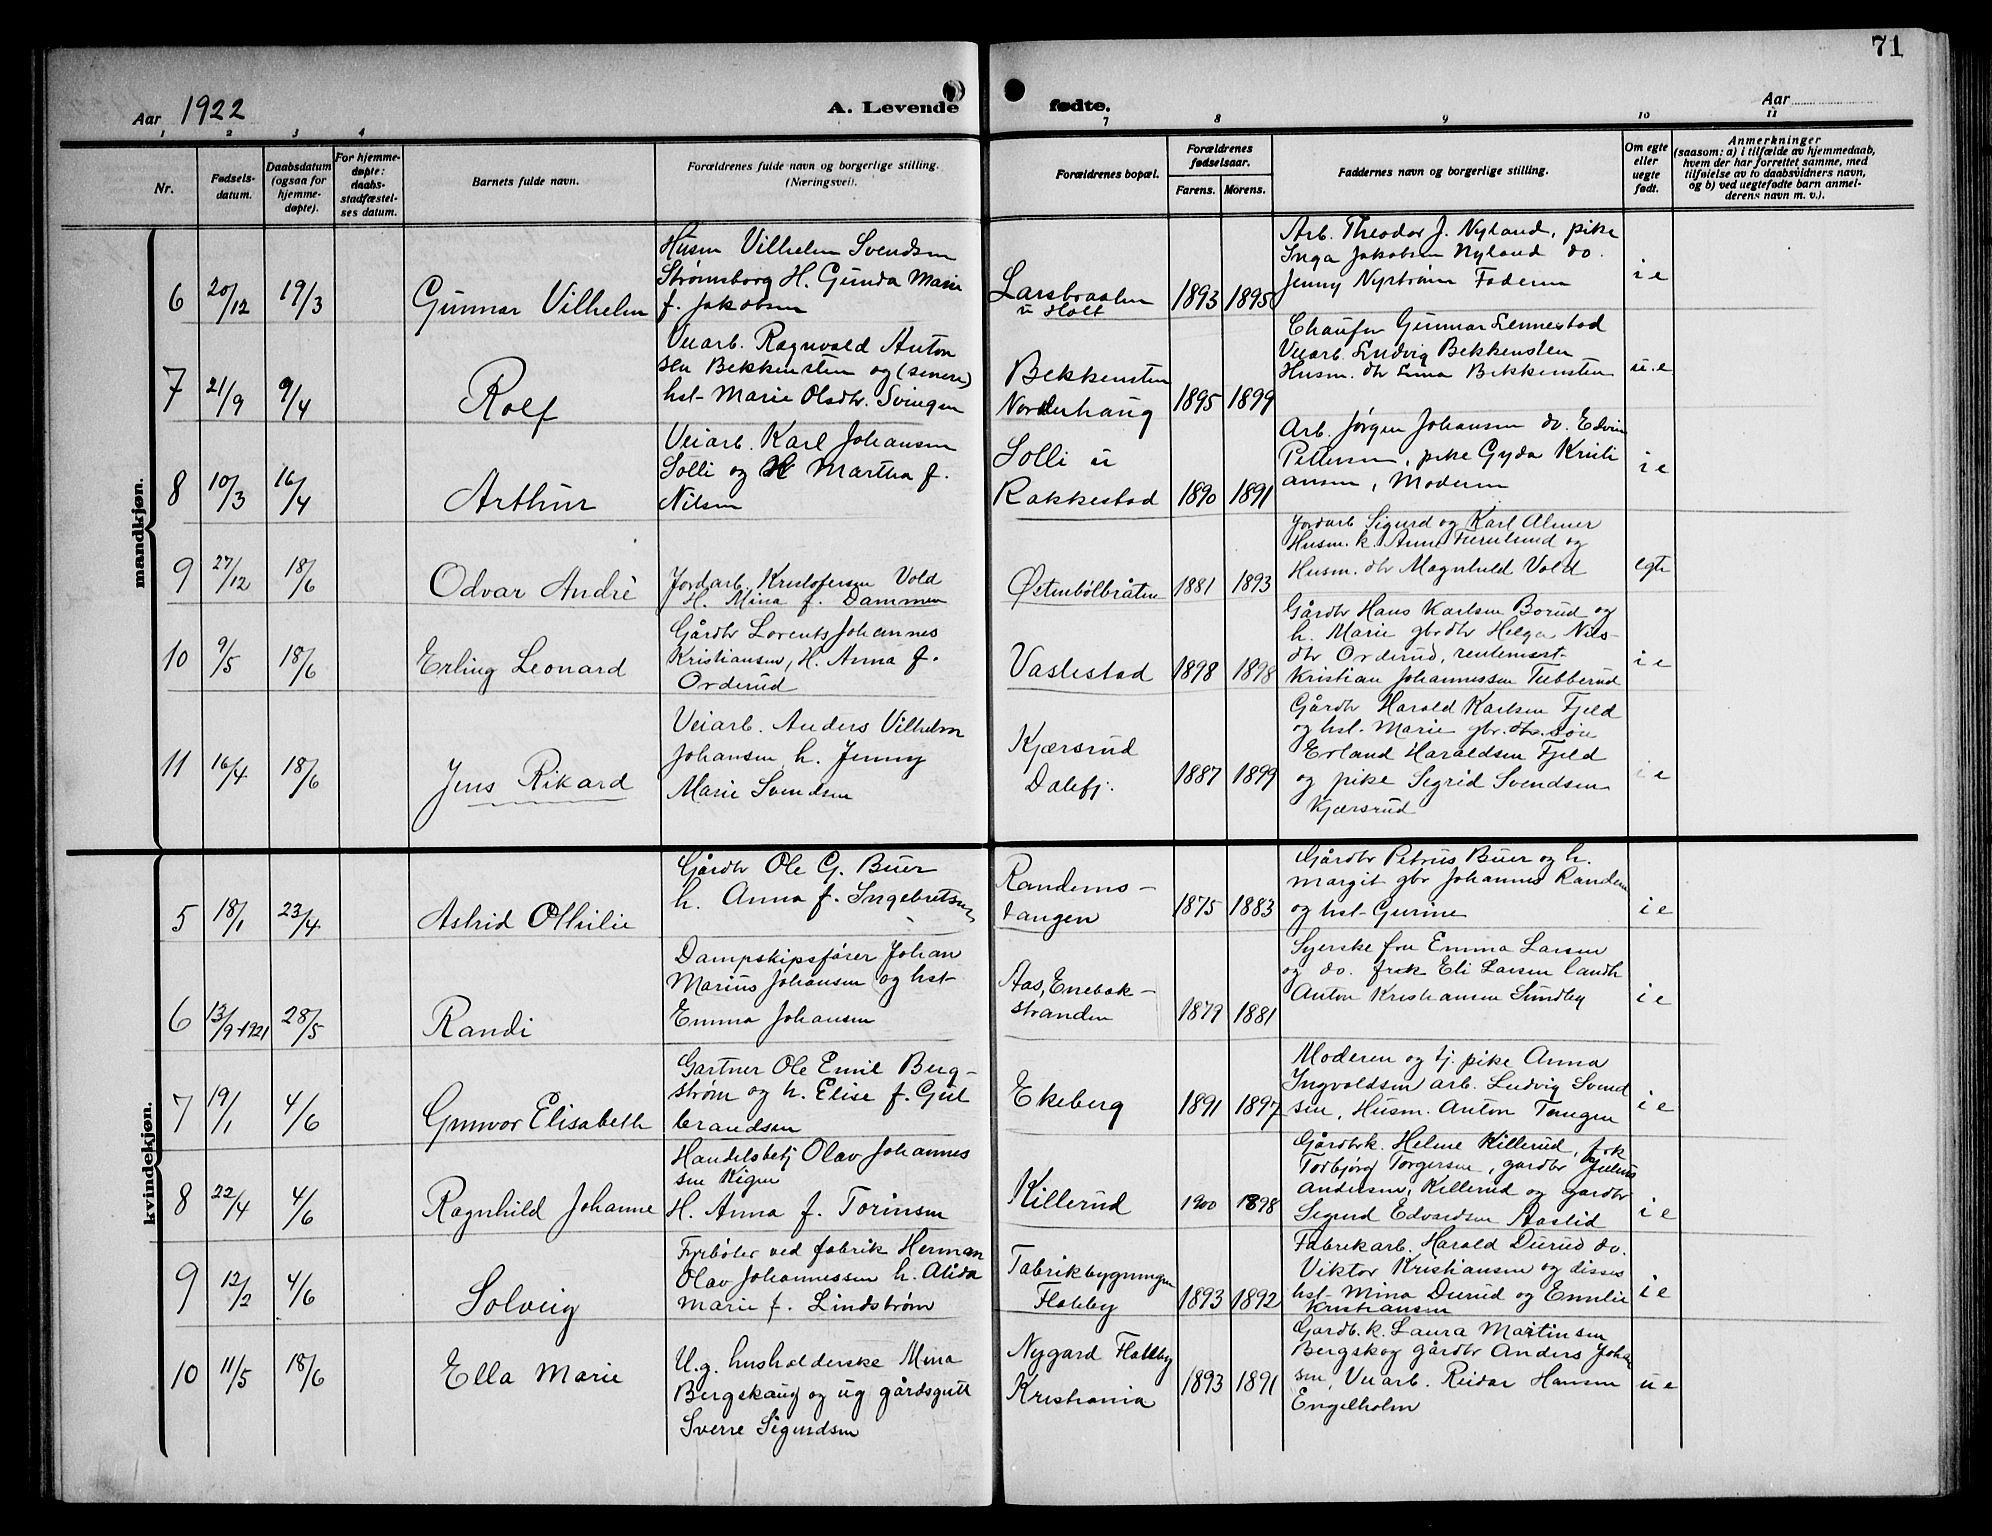 71
Aar 1922
A. Levende fødte.
Aar
1 2 3 4 7 8 9 10 11
Nr.
Fødsels-
datum.
Daabsdatum
(ogsaa for
hjemme-
døpte).
For hjemme-
døpte:
daabs-
stadfæstel-
ses datum.
Barnets fulde navn.
Forældrenes fulde navn og borgerlige stilling.
(Næringsvei).
Forældrenes bopæl.
Forældrenes
fødselsaar.
Farens. Morens.
Faddernes navn og borgerlige stilling.
Om egte
eller
uegte
født.
Anmerkninger
(saasom: a) i tilfælde av hjemmedaab,
hvem der har forrettet samme, med
tilføielse av to daabsvidners navn,
og b) ved uegtefødte barn anmel-
derens navn m. v.).
mandkjøn.
6 20/12 19/3 Gunnar Vilhelm
Husm Vilhelm Svendsen
Strømsborg H. Gunda Marie
f. Jakobsen
Larsbraaten
u Holt
1893 1895
Arb. Theodor J. Nyland, pike
Inga Jakobsen Nyland do.
Jenny Nystrøm Faderen
i e
7 21/9 9/4 Rolf
Veiarb. Ragnvald Anton
sen Bekkensten og (senere)
hst- Marie Olsdtr. Svingen
Bekkensten
Norderhaug
1895 1899
Chaufør Gunnar Lennestad
Veiarb. Ludvig Bekkensten
Husm. dtr Lina Bekkensten
u. e
8 10/3 16/4 Arthur
Veiarb. Karl Johansen
Solli og H Martha f.
Nilsen
Solli u
Rakkestad
1890 1891
Arb. Jørgen Johansen do. Edvin
Pettersen, pike Gyda Kristi
ansen, Moderen
i e
9 27/12 18/6 Odvar André
Jordarb. Kristofersen Vold
H. Mina f. Dammen
Østenbölbråten
1881 1893
Jordarb Sigurd og Karl Almer
Husm. k. Anne Furulund og
Husm. dtr Magnhild Vold
egte
10 9/5 18/6 Erling Leonard
Gårdbr Lorents Johannes
Kristiansen, H. Anna f.
Orderud
Vastestad
1898 1898
Gårdbr Hans Karlsen Borud og
h. Marie gbrdtr Helga Nils-
dtr Orderud, rentemest-
Kristian Johannessen Tubberud
i e
11 16/4 18/6 Jens Rikard
Veiarb. Anders Vilhelm
Johansen h. Jenny
Marie Svendsen
Kjærsrud
Dalefj.
1887 1899
Gårdbr Harald Karlsen Fjeld
og hst. Marie gbr. dtr. søn
Erland Haraldsen Fjeld
og pike Sigrid Svendsen
Kjærsrud
i e
kvindekjøn.
5 18/1 23/4 Astrid Othilie
Gårdbr Ole G. Buer
h. Anna f. Ingebretsen
Randems-
tangen
1875 1883
Gårdbr Petrus Buer og h.
Margit gbr Johannes Randem
og hst- Gurine
i e
6 13/9-1921 28/5 Randi
Dampskipsfører Johan
Marius Johansen og hst-
Emma Johansen
Aas, Enebak-
stranden
1879 1881
Syerske fru Emma Larsen
og do. frøk Eli Larsen landh
Anton Kristiansen Sundby
i e
7 19/1 4/6 Gunvor Elisabeth
Gartner Ole Emil Berg-
strøm og h. Elise f. Gul
brandsen
Ekeberg
1891 1897
Moderen og tj. pike Anna
Ingvaldsen arb. Ludvig Svend
sen, Husm. Anton Tangen
i e
8 22/4 4/6 Ragnhild Johanne
Handelsbetj Olav Johannes
sen Rigen
H. Anna f. Torinsen
Killerud
1900 1898
Gårdbrk. Helene Killerud, frk
Torbjørg Torgersen, gardbr Julius
Andersen, Killerud og gardbr
Sigurd Edvardsen Aaslid
i e
9 12/2 4/6 Solveig
Fyrbøter ved fabrik Herman
Olav Johannessen h. Alida
Marie f. Lindstrøm
Fabrikbygningen
Flateby
1893 1892
Fabrikarb. Harald Durud do.
Viktor Kristiansen og disses
hst- Mina Durud og Emilie
Kristiansen
i e
10 11/5 18/6 Ella Marie
U.g. husholderske Mina
Bergskaug og ug gårdsgutt
Sverre Sigurdsen
Nygard Flateby
Kristiania
1893 1891
Gardb. k. Laura Martinsen
Bergskog gårdbr Anders Johan
sen, Veiarb. Reidar Hansen
Engelholm
u e